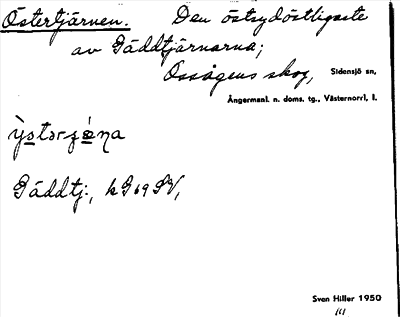 Östertjärnen. Den östsydöstligaste
av Gäddtjärnarna;
Ossågens skog, Sidensjö sn,
Ångermanl. n. doms. tg., Västernorrl. l.
Gäddtj:, k G 69 SV,
Sven Hiller 1950